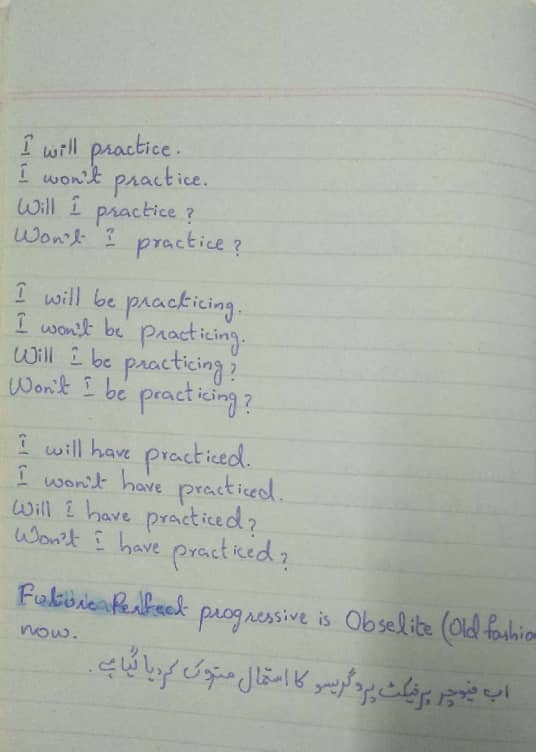 I will practice.
I won't practice.
Will I practice?
Won't I practice?
I will be practicing.
I won't be practicing.
Will I be practicing?
Won't I be practicing?
I will have practiced.
I won't have practiced.
Will I have practiced?
Won't I have practiced?
Future Perfect progressive is Obselite (Old fashio
now.
اب فیوچر پرفیکٹ پروگریسو کا استمال متروک کر دیا گیا ہے۔